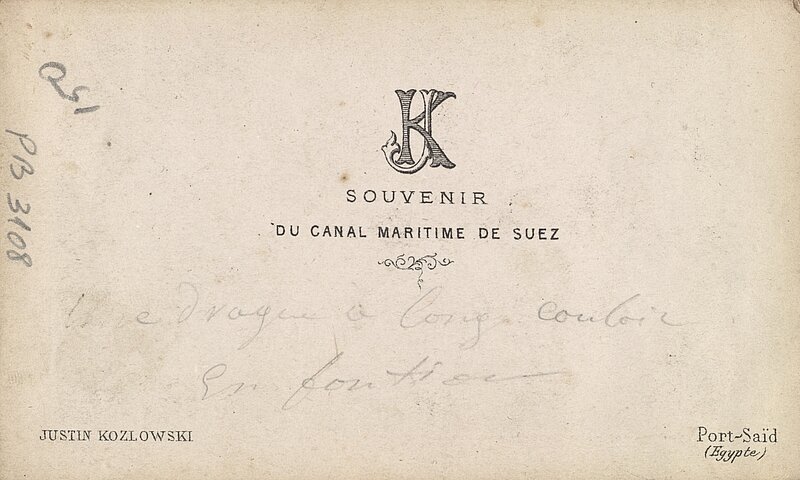 JK
SOUVENIR
DU CANAL MARITIME DE SUEZ
Une drague a long couloir
En
JUSTIN KOZLOWSKI
Port-Saïd
(Egypte)
PB 3108